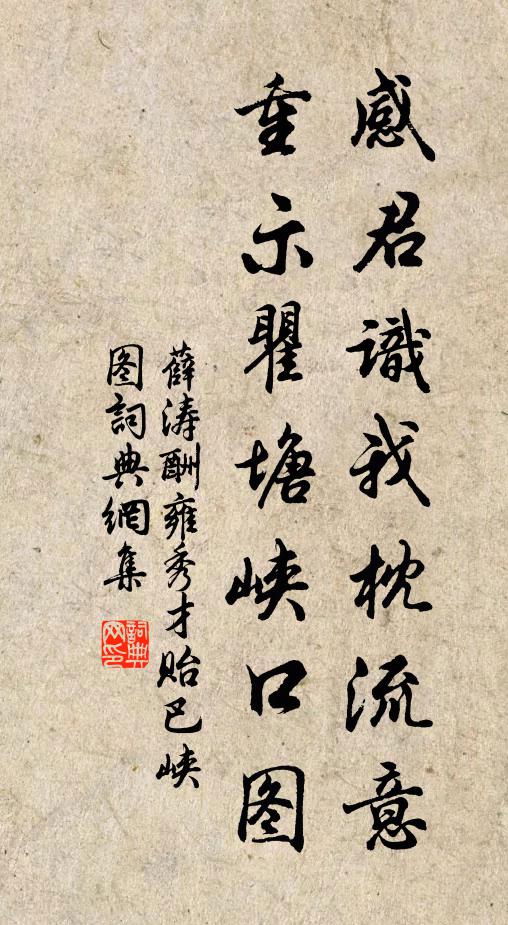 感君識我枕流意
重示瞿塘峡口图
薛涛酬雍秀才貽巴峡
图詞典網集
詞典
网印